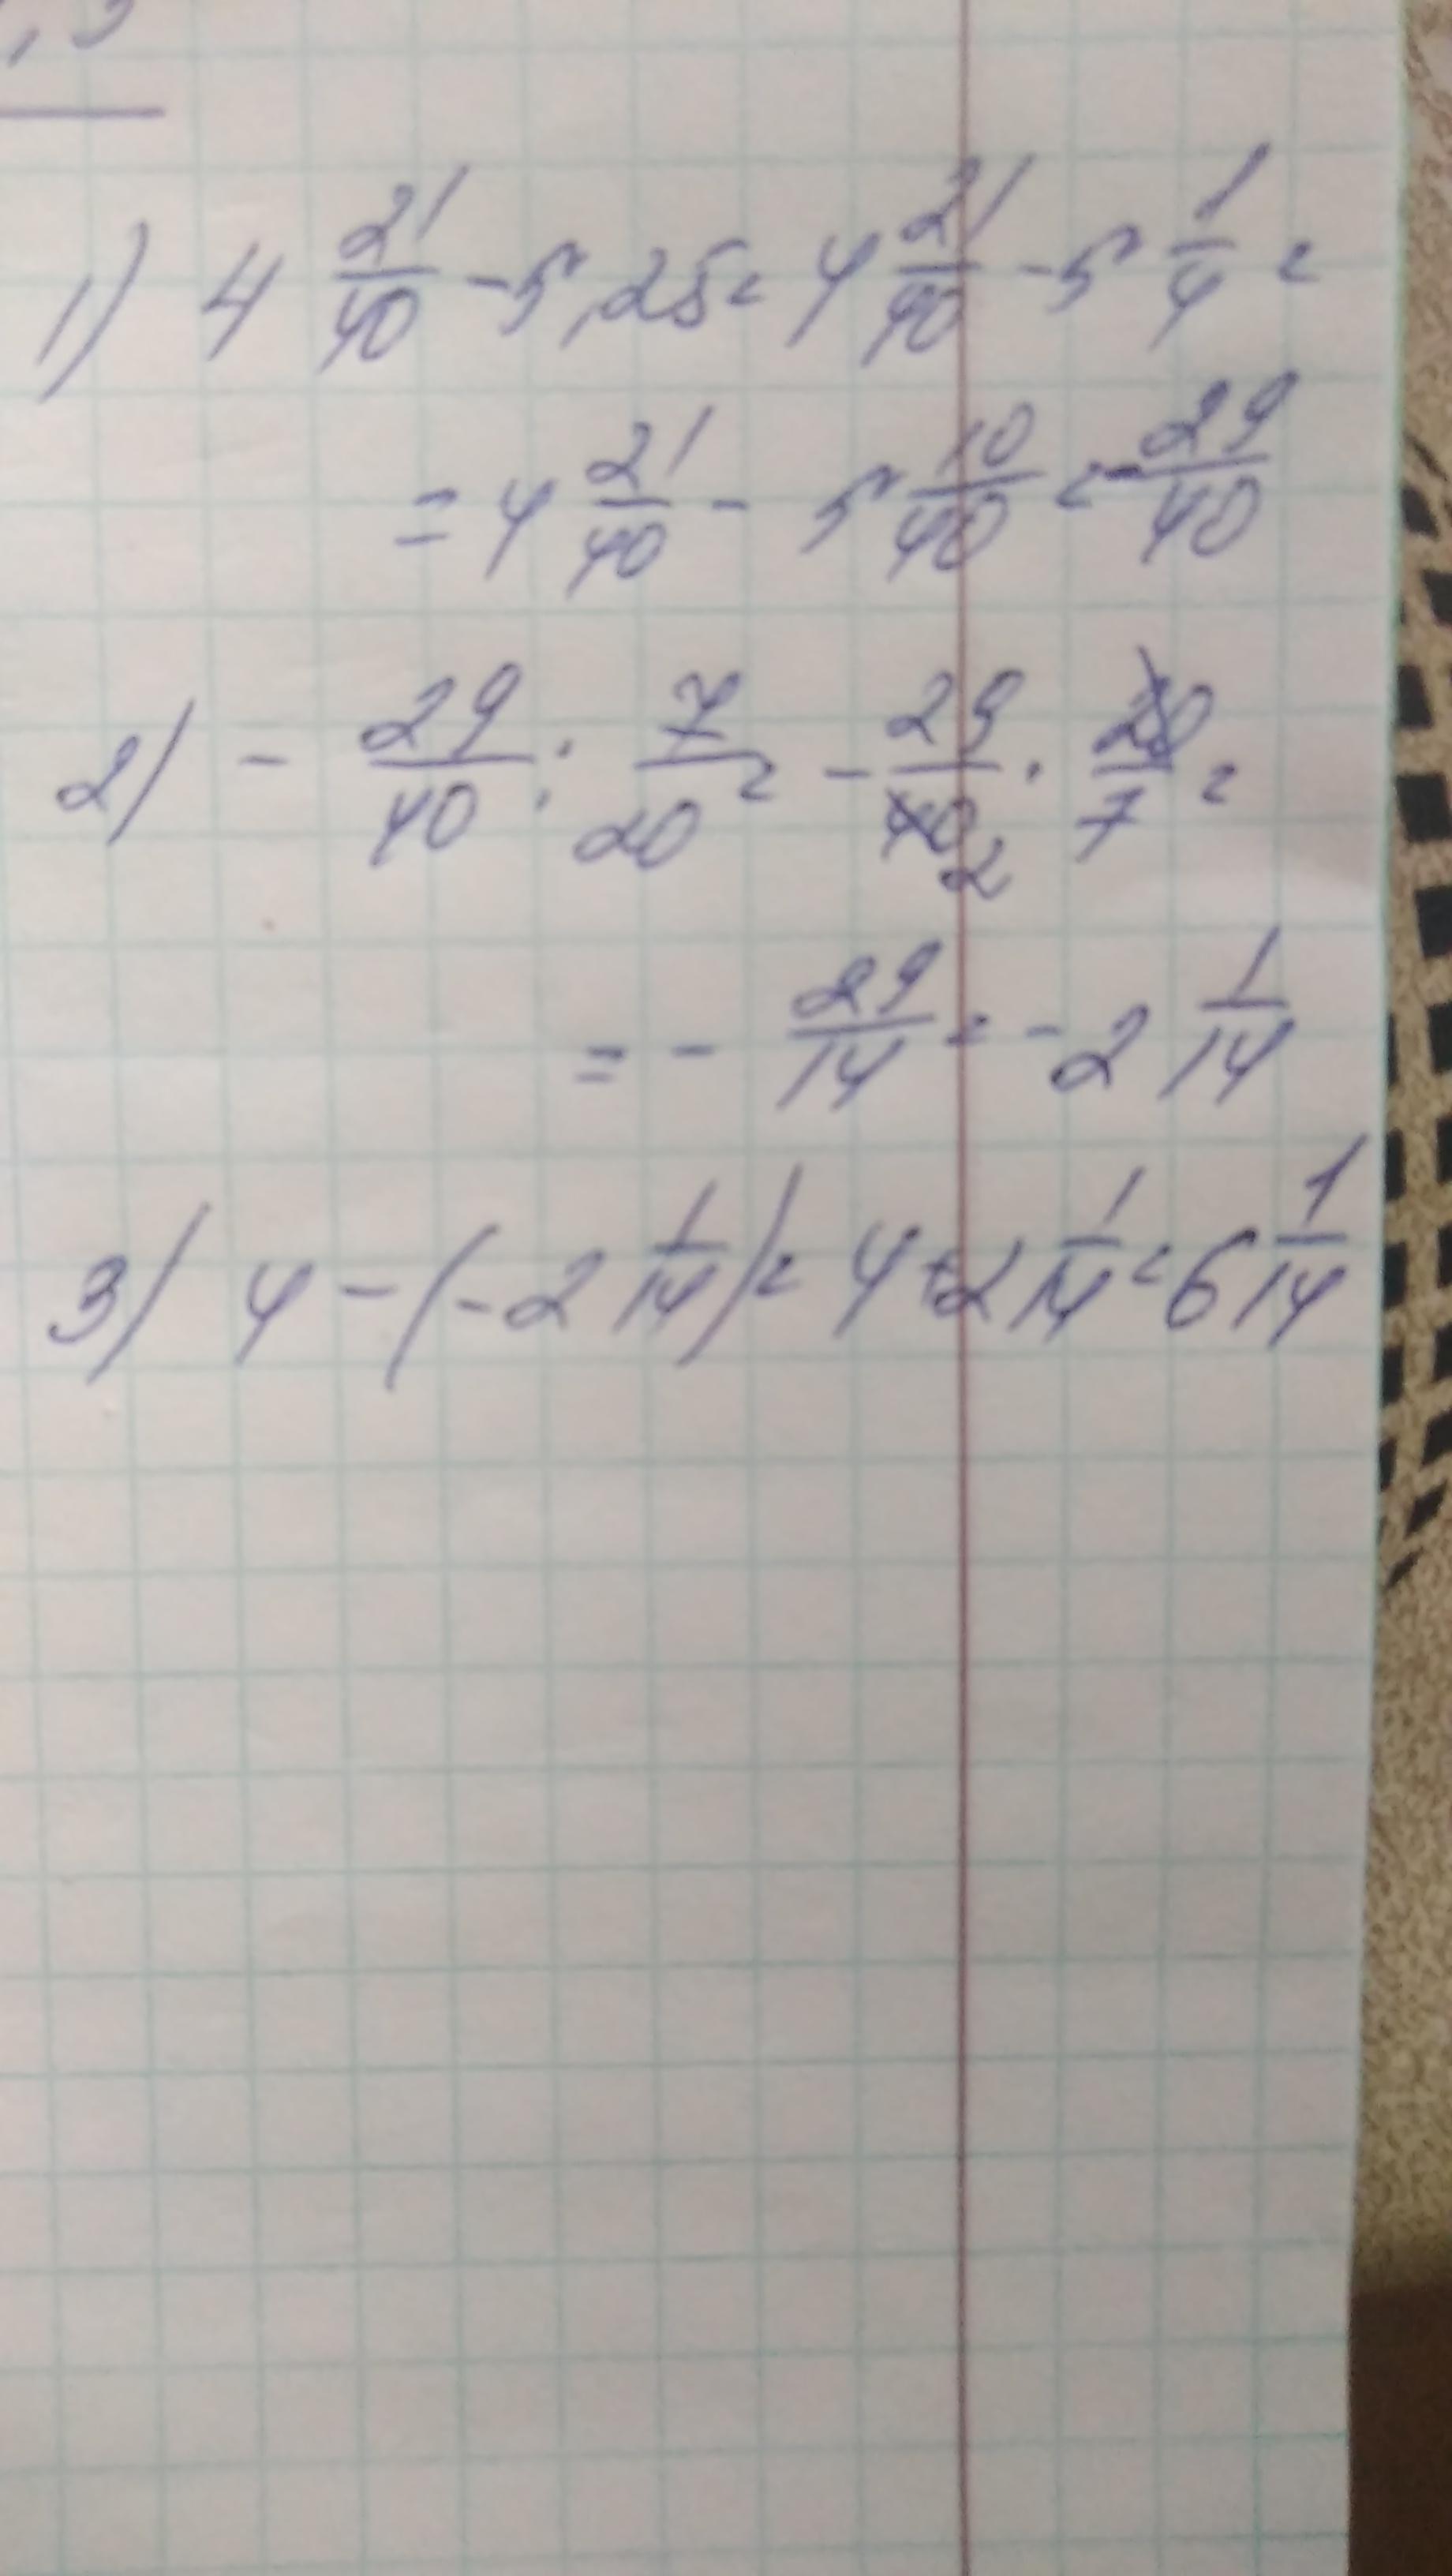 1) 4 21/40 - 5,25 = 4 21/40 - 5 1/4 =
= 4 21/40 - 5 10/40 = - 29/40
2) - 29/40 : 7/20 = - 29/40 2 · 20/7 =
= - 29/14 = - 2 1/14
3) 4 - (- 2 1/14) = 4 + 2 1/14 = 6 1/14